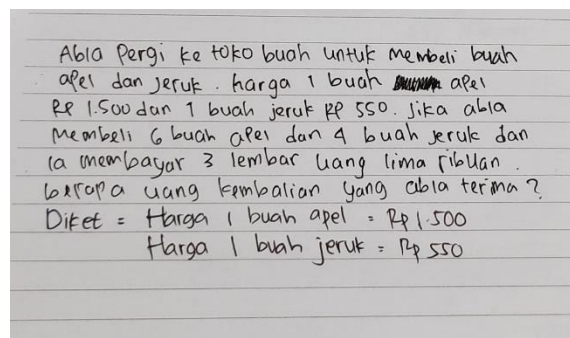 Abla Pergi ke toko buah untuk membeli buah
apel dan jeruk. harga 1 buah apel
Rp 1.500 dan 1 buah jeruk Rp 550. Jika abla
Membeli 6 buah apel dan 4 buah jeruk dan
ia membayar 3 lembar uang lima ribuan.
berapa uang kembalian yang abla terima?
Diket = Harga 1 buah apel = Rp 1.500
Harga 1 buah jeruk = Rp 550